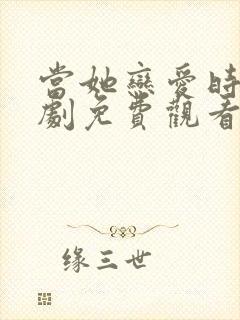 當她戀愛時
劇免費觀看
缘三世